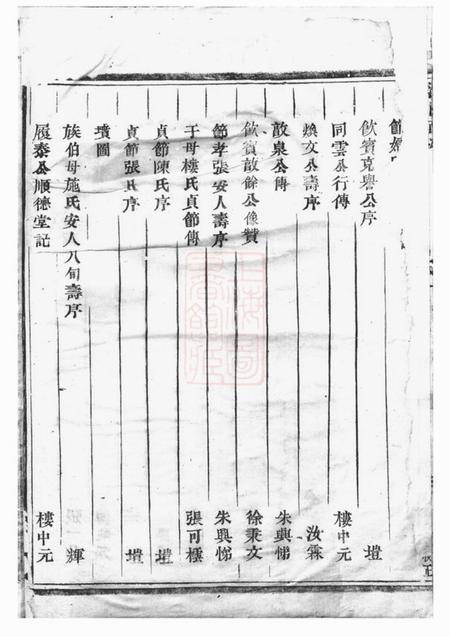 節
飲賓克譽公序 塏
同雲公行傳 樓中元
煥文公壽序 汝霖
敔泉公傳 朱興悌
飲賓敔餘公像贊 徐秉文
節孝張安人壽序 朱興悌
于母樓氏貞節傳 張可極
貞節陳氏序 塏
貞節張氏序 塏
墳圖
族伯母施氏安人八旬壽序 輝
履泰公順德堂記 樓中元